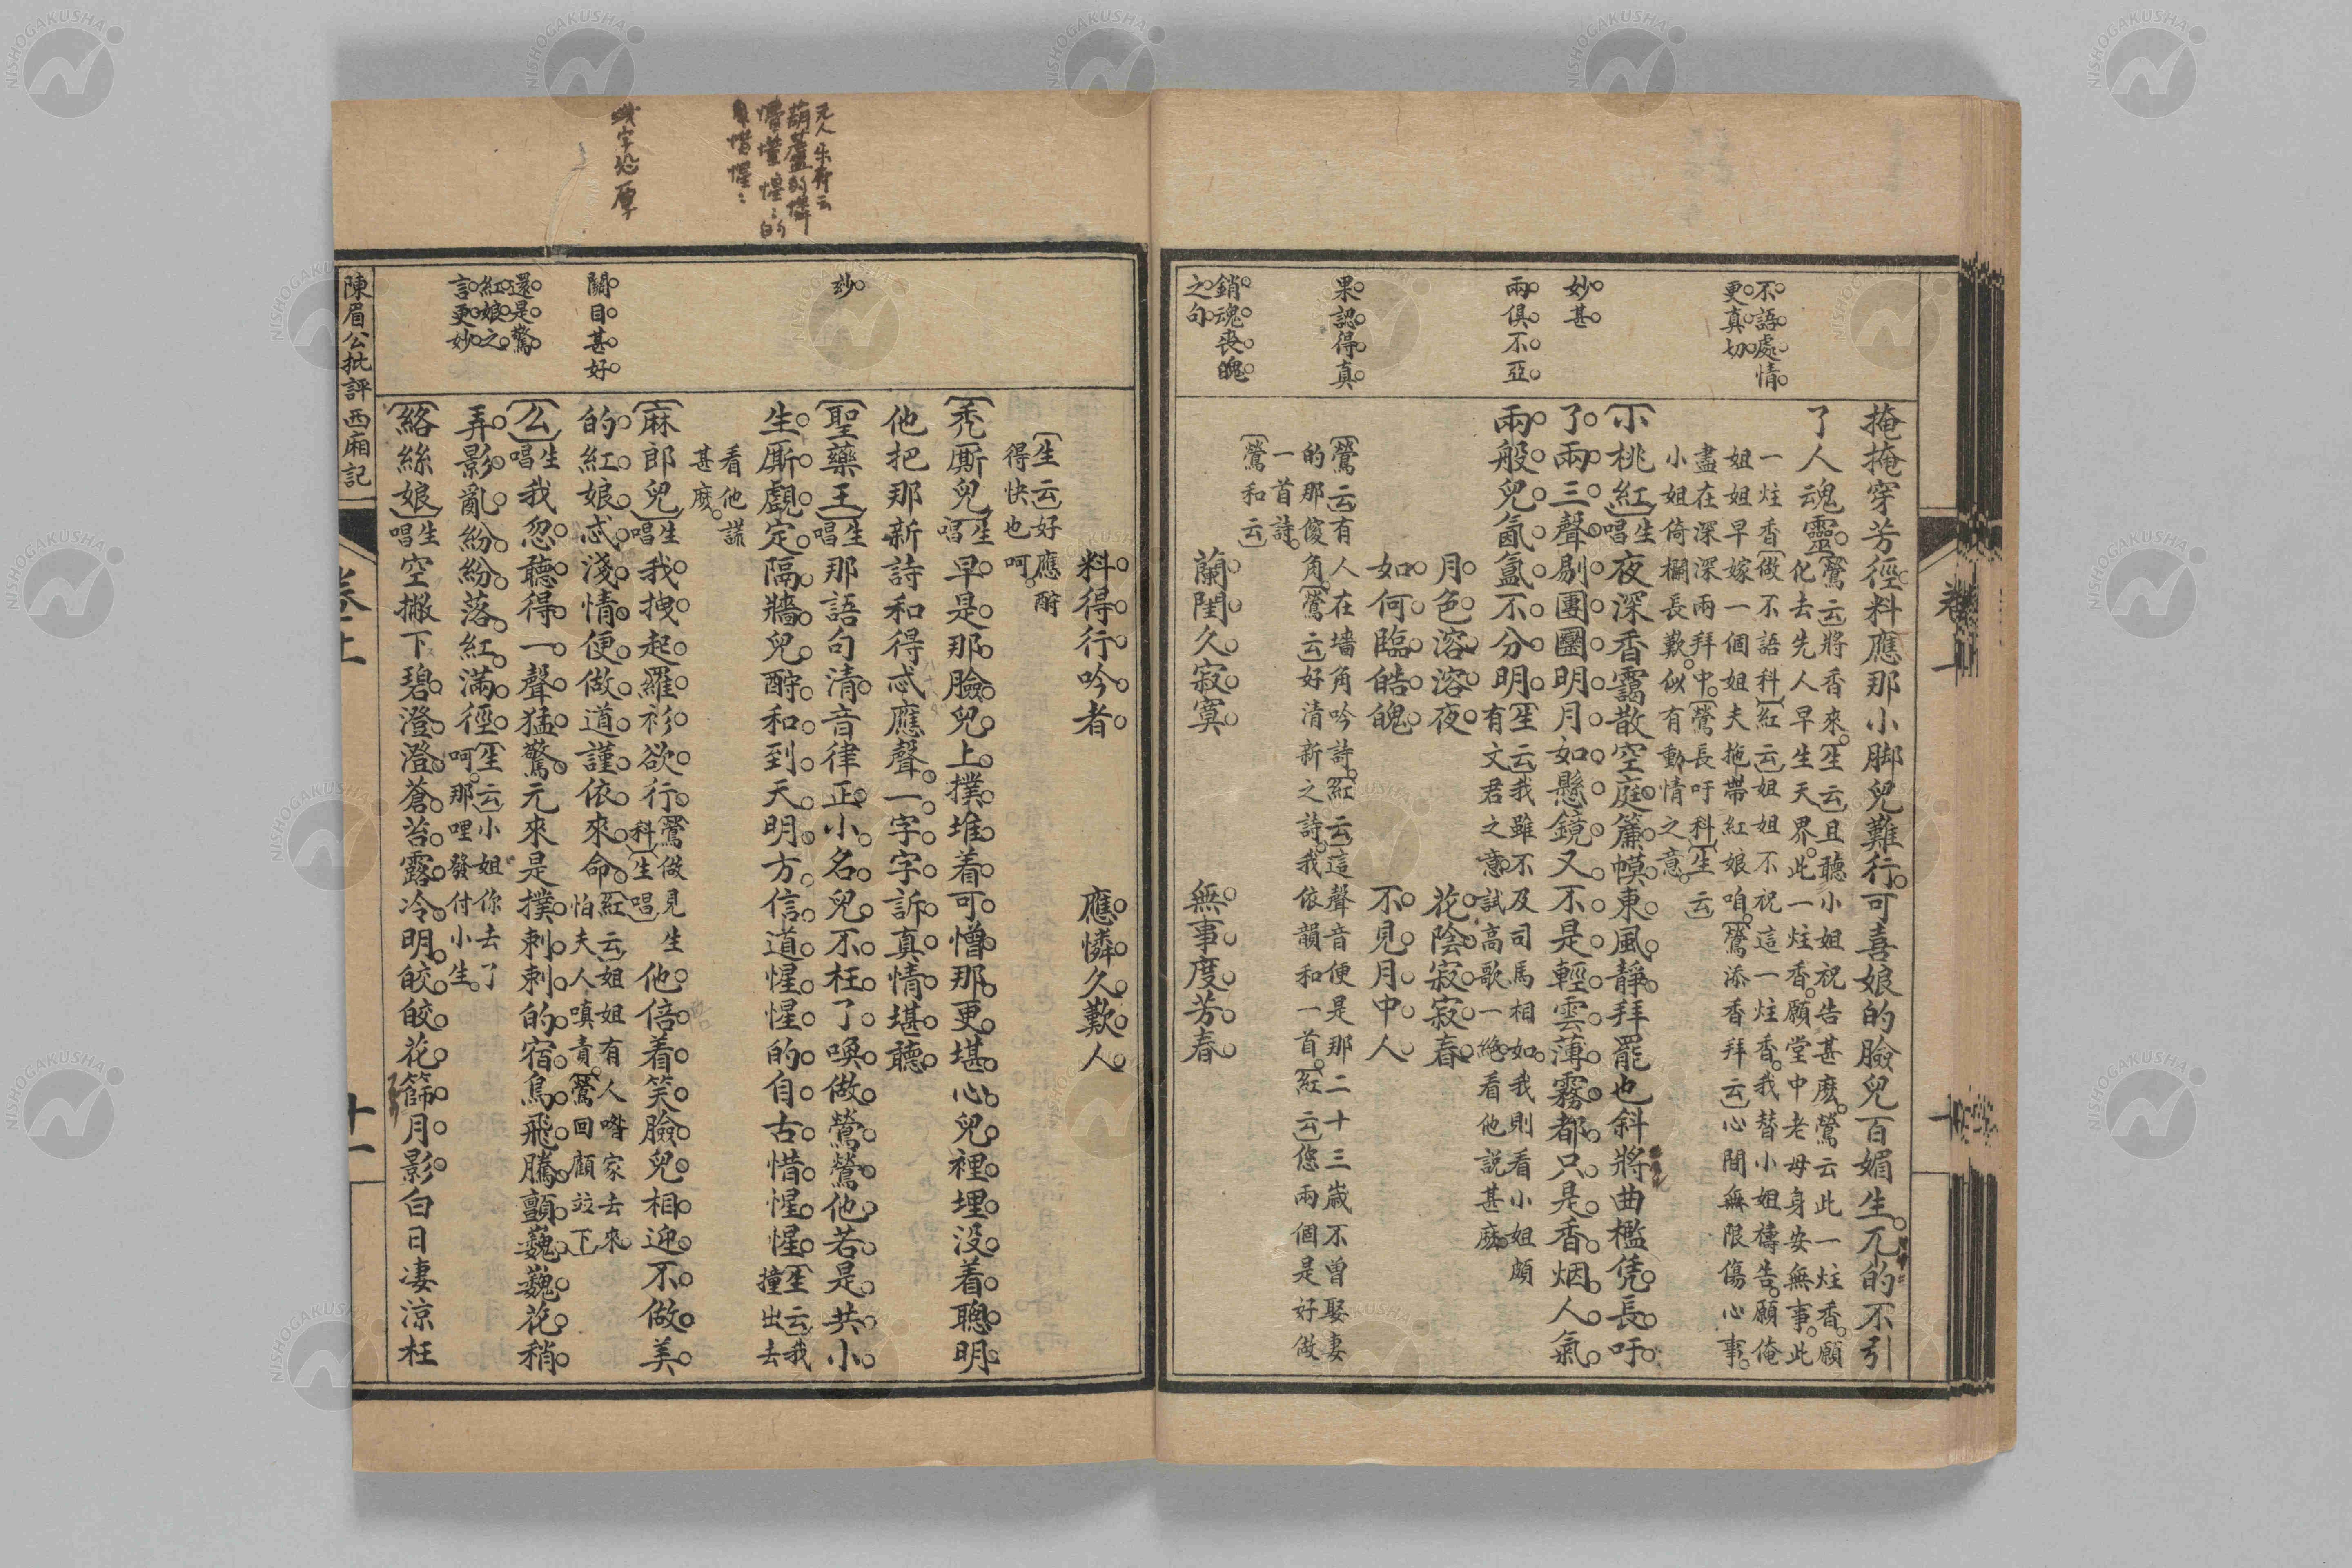 不語處情
更真切
妙甚
兩俱不亞
果認得真
銷魂喪魄
之句
掩掩穿芳徑料應那小脚兒難行可喜娘的臉兒百媚生兀的不引
了人魂靈
鶯云將香來生云且聽小姐祝告甚麽鶯云此一炷香願
化去先人早生天界此一炷香願堂中老母身安無事此
一炷香做不語科紅云姐姐不祝這一炷香我替小姐禱告願俺
姐姐早嫁一個姐夫拖帶紅娘咱鶯添香拜云心間無限傷心事
盡在深深兩拜中鶯長吁科生云
小姐倚欄長歎似有動情之意
小桃紅生唱夜深香靄散空庭簾幙東風靜拜罷也斜將曲檻凭長吁
了兩三聲剔團圞明月如懸鏡又不是輕雲薄霧都只是香烟人氣
兩般兒氤氳不分明
生云我雖不及司馬相如我則看小姐頗
有文君之意試高歌一絶看他説甚麽
月色溶溶夜 花陰寂寂春
如何臨皓魄 不見月中人
鶯云有人在墻角吟詩紅云這聲音便是那二十三歲不曾娶妻
的那傻角鶯云好清新之詩我依韻和一首紅云您兩個是好做
一首詩
鶯和云
蘭閨久寂寞 無事度芳春
卷上
十
妙
關目甚好
還是驚
紅娘之
言更妙
元人
葫蘆
料得行吟者 應憐久歎人
生云好應酧
得快也呵
禿厮兒生唱早是那臉兒上撲堆着可憎那更堪心兒裡埋没着聰明
他把那新詩和得忒應聲一字字訴真情堪聽
聖藥王生唱那語句清音律正小名兒不枉了喚做鶯鶯他若是共小
生厮覷定隔牆兒酧和到天明方信道惺惺的自古惜惺惺
生云我
撞出去
看他謊
甚麽
麻郎兒生唱我拽起羅衫欲行
鶯做見生
科生唱
他倍着笑臉兒相迎不做美
的紅娘忒淺情便做道謹依來命
紅云姐姐有人喒家去來
怕夫人嗔責鶯回顧竝下
么生唱我忽聽得一聲猛驚元來是撲剌剌的宿鳥飛騰顫巍巍花稍
弄影亂紛紛落紅滿徑
生云小姐你去了
呵那哩發付小生
絡絲娘生唱空撇下碧澄澄蒼苔露冷明皎皎花篩月影白日凄涼枉
陳眉公批評西廂記
卷上
十一
NISHOGAKUSHA